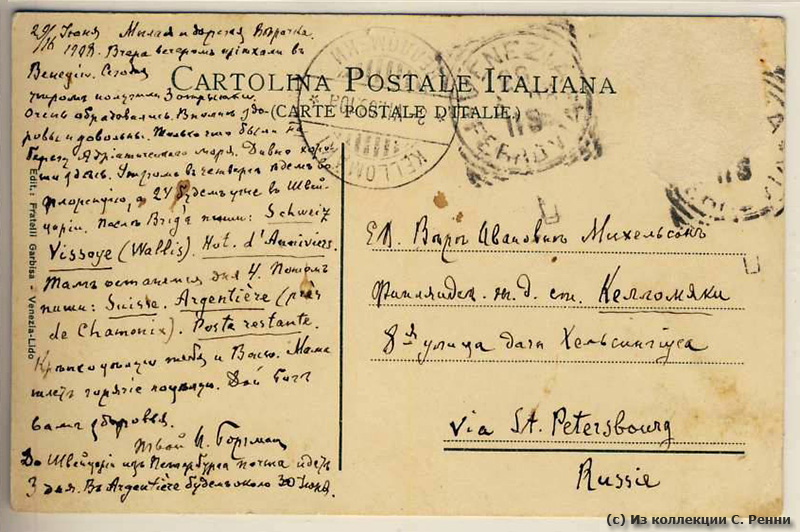 29/16 Июня Милая и дорогая Верочка.
1908. Вчера вечером пріѣхали въ
Венецію. Сегодня
утромъ получили 3 открытки.
Очень обрадовались. Вполнѣ здо-
ровы и довольны. Только что были на
берегу Адріатическаго моря. Дивно хорошъ
день. Утромъ въ четвергъ ѣдемъ во
Флоренцію, а 24 будемъ уже въ Швей-
царіи. Послѣ Brig'а пиши: Schweiz
Vissoye (Wallis). Hot. d'Anniviers.
Тамъ останемся дня 4. Потомъ
пиши: Suisse. Argentière (près
de Chamonix). Poste restante.
Крѣпко цѣлую тебя и Ваню. Мама
шлетъ горячіе поцѣлуи. Дай Богъ
вамъ здоровья.
Твой И. Боргманъ
До Швейцаріи изъ Петербурга почта идетъ
3 дня. Въ Argentière будемъ около 30 Іюня.
Edit.: Fratelli Garbisa - Venezia-Lido
CARTOLINA POSTALE ITALIANA
(CARTE POSTALE D'ITALIE.)
KELLOM
VENEZIA
FERROVIA
Е.В. Вѣрѣ Ивановнѣ Михельсонъ
Финляндск. ж. д. ст. Келломяки
8ая улица дача Хельсингіуса
via St. Petersbourg
Russie
(c) Из коллекции С. Ренни